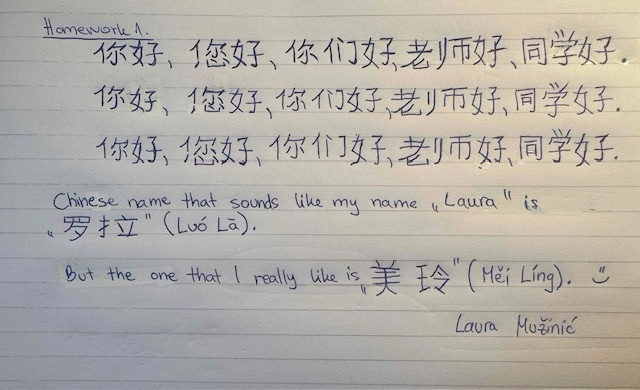 Homework 1.
你好、您好、你们好、老师好、同学好.
你好、您好、你们好、老师好、同学好.
你好、您好、你们好、老师好、同学好.
Chinese name that sounds like my name „Laura" is
„罗拉" (Luó Lā).
But the one that I really like is „美玲" (Měi Líng). :)
Laura Mužinić